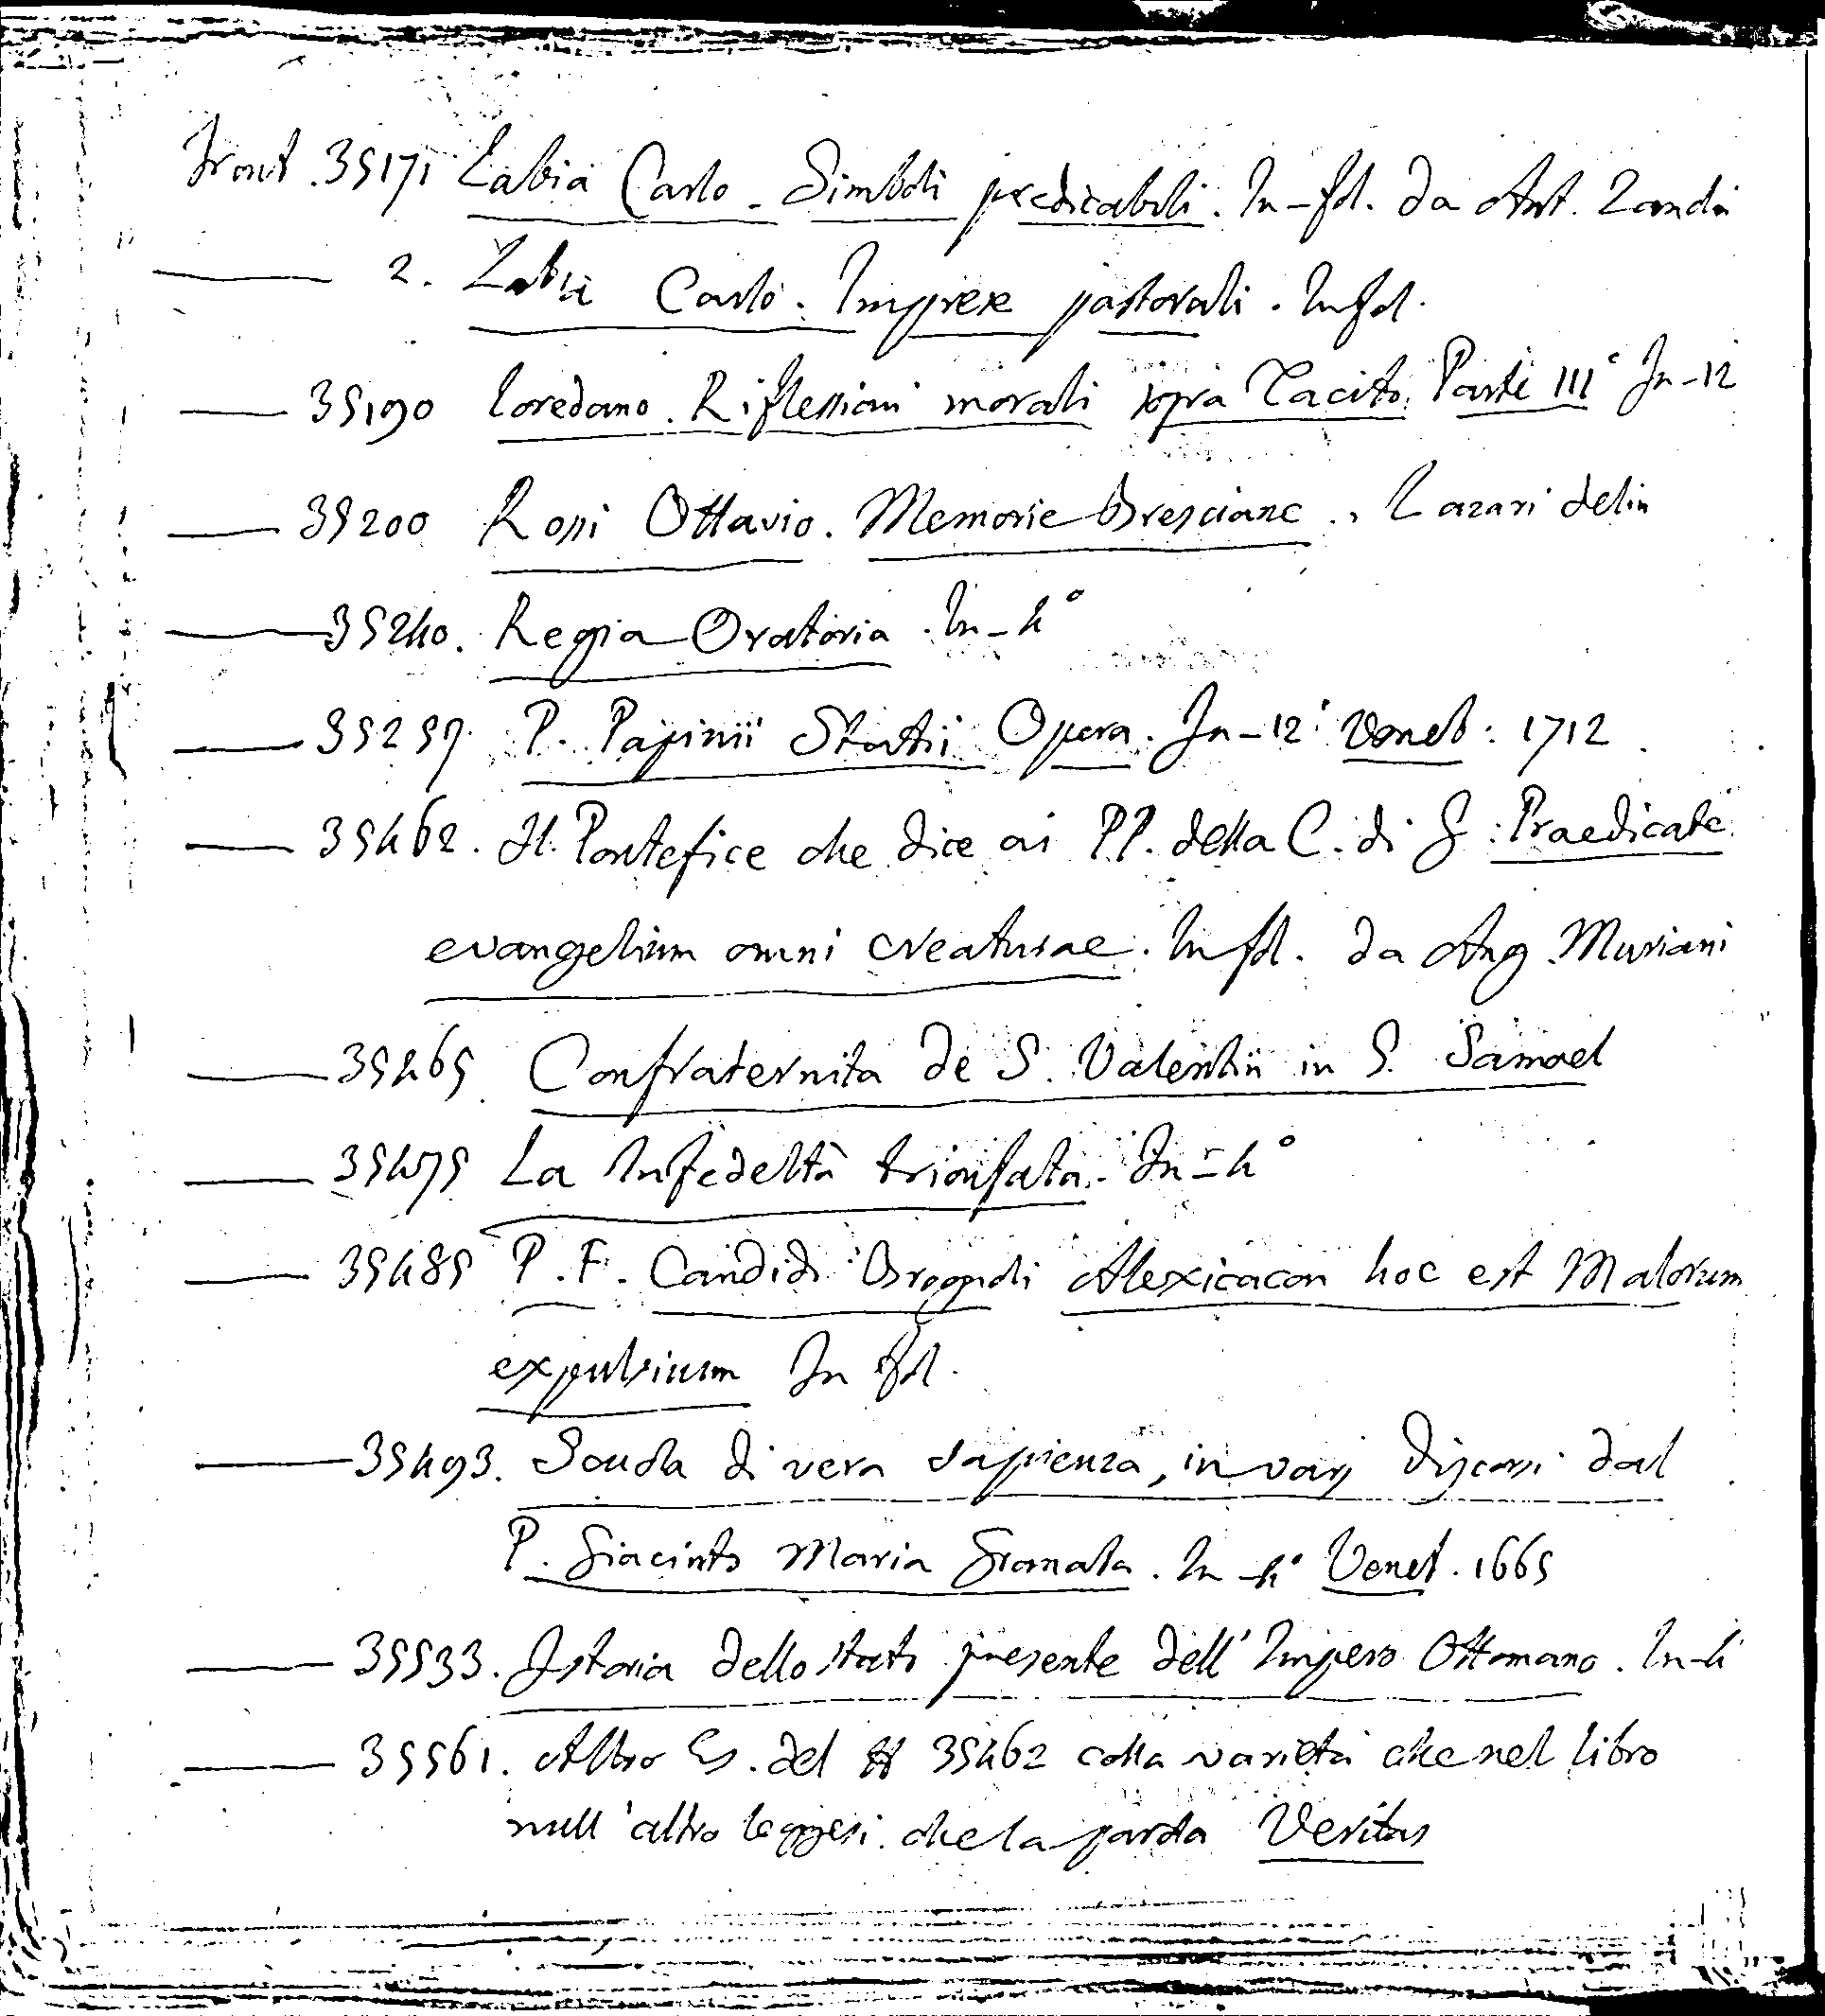 Front. 35171 Labia Carlo - Simboli predicabili. In-fol. da Ant. Zandi
—— 2. Labia Carlo. Imprese pastorali. In fol.
—— 35190 Loredano. Riflessioni morali sopra Tacito. Parte III° In-12
—— 35200 Rossi Ottavio. Memorie Bresciane. Lazari delin
—— 35240. Regia Oratoria. In-4°
—— 35257. P. Papinii Statii Opera. In-12° Venet: 1712
—— 35462. Il Pontefice che dice ai PP. della C. di G: Praedicate
evangelium omni creaturae. In fol. da Ang. Mariani
—— 35465 Confraternita de S. Valentin in S. Samael
—— 35475 La Infedeltà trionfata. In-4°
—— 35485 P. F. Candidi Brognoli Alexicacon hoc est Malorum
expulsium In fol.
—— 35493. Scuola di vera sapienza, in varj discorsi dal
P. Giacinto Maria Granata. In-4° Venet. 1665
—— 35533. Istoria dello stato presente dell'Impero Ottomano. In-4
—— 35561. Altro Es. del 35462 colla varietà che nel libro
null'altro leggesi che la parola Veritas